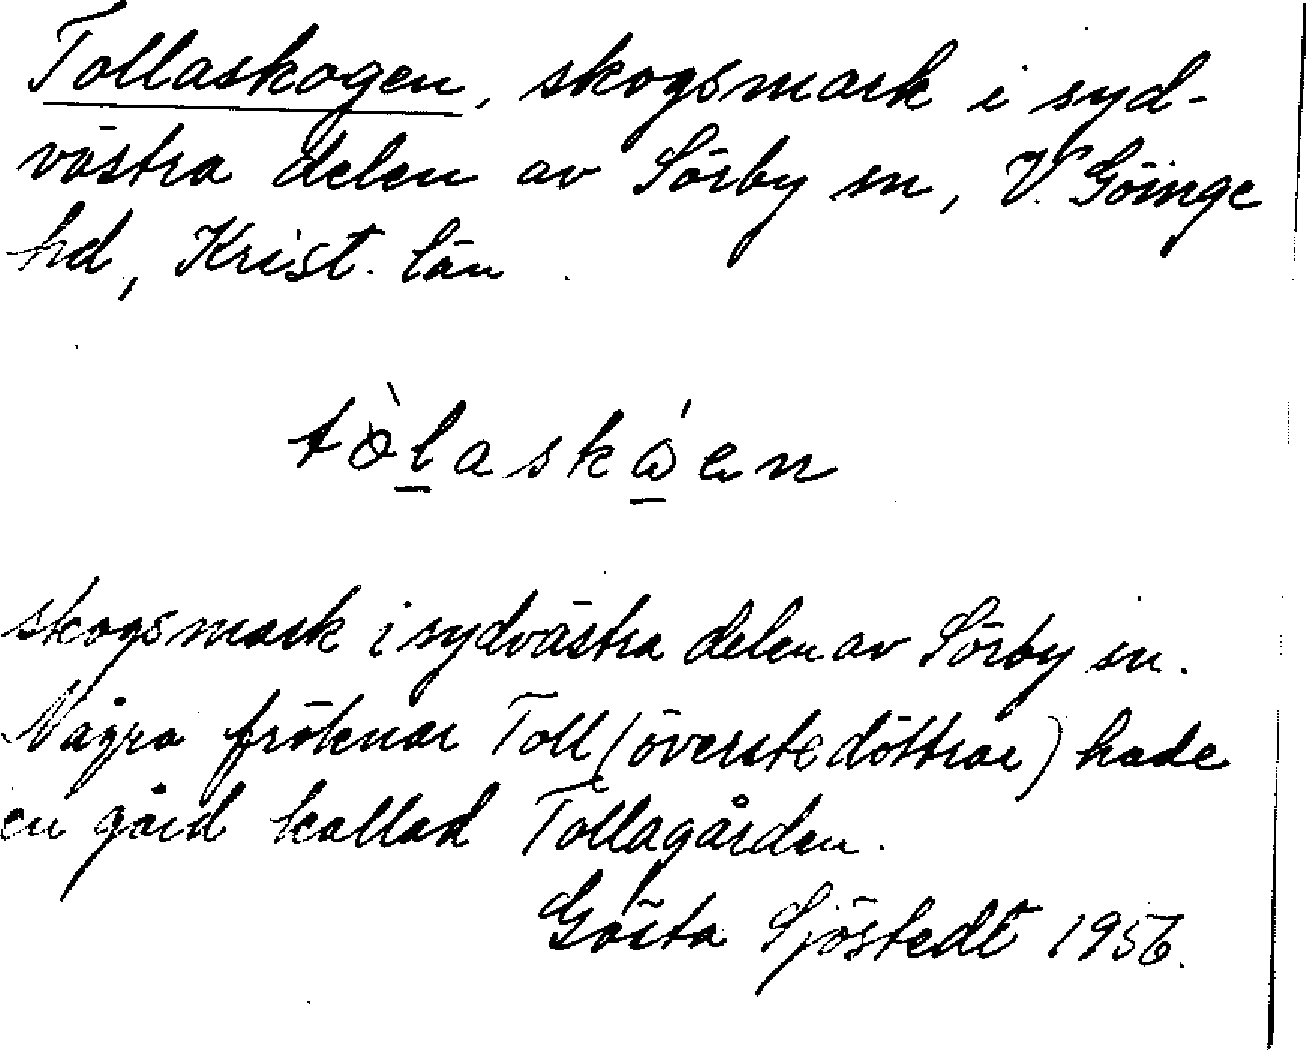 Tollaskogen, skogsmark i syd-
västra delen av Sörby sn, V. Göinge
hd, Krist. län
tòlaskåen
skogsmark i sydvästra delen av Sörby sn.
Några fröknar Toll (överstedöttrar) hade
en gård kallad Tollagården.
Gösta Sjöstedt 1956.